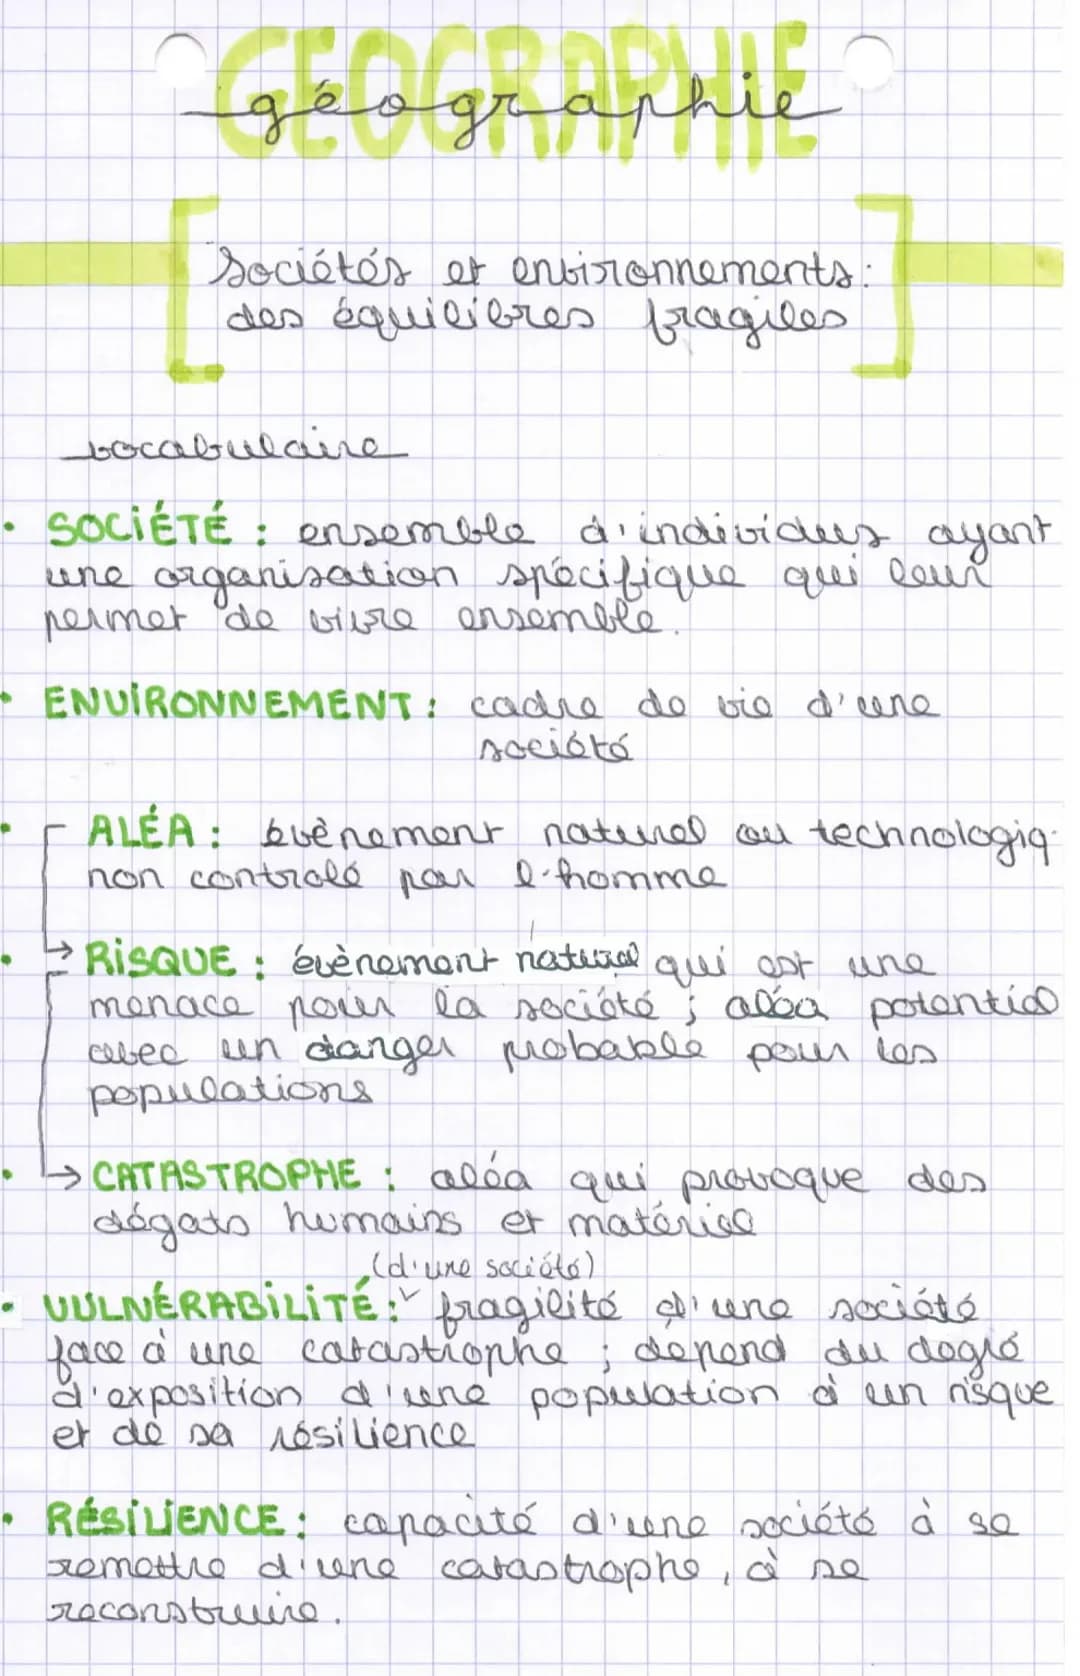 GEOGRAPHIE
géographie
Sociétés et environnements :
des équilibres fragiles
vocabulaire
• SOCIÉTÉ : ensemble d'individus ayant
une organisation spécifique qui leur
permet de vivre ensemble.
• ENVIRONNEMENT : cadre de vie d'une
société
• ALÉA : évènement naturel ou technologiq
non controlé par l'homme
• → RISQUE : évènement natural qui est une
menace pour la société ; aléa potentiel
avec un danger probable pour les
populations
• → CATASTROPHE : aléa qui provoque des
dégats humains et matériel
(d'une société)
• VULNÉRABILITÉ : fragilité d'une société
face à une catastrophe ; dépend du degré
d'exposition d'une population à un risque
et de sa résilience
• RÉSILIENCE : capacité d'une société à se
remettre d'une catastrophe, à se
reconstruire.